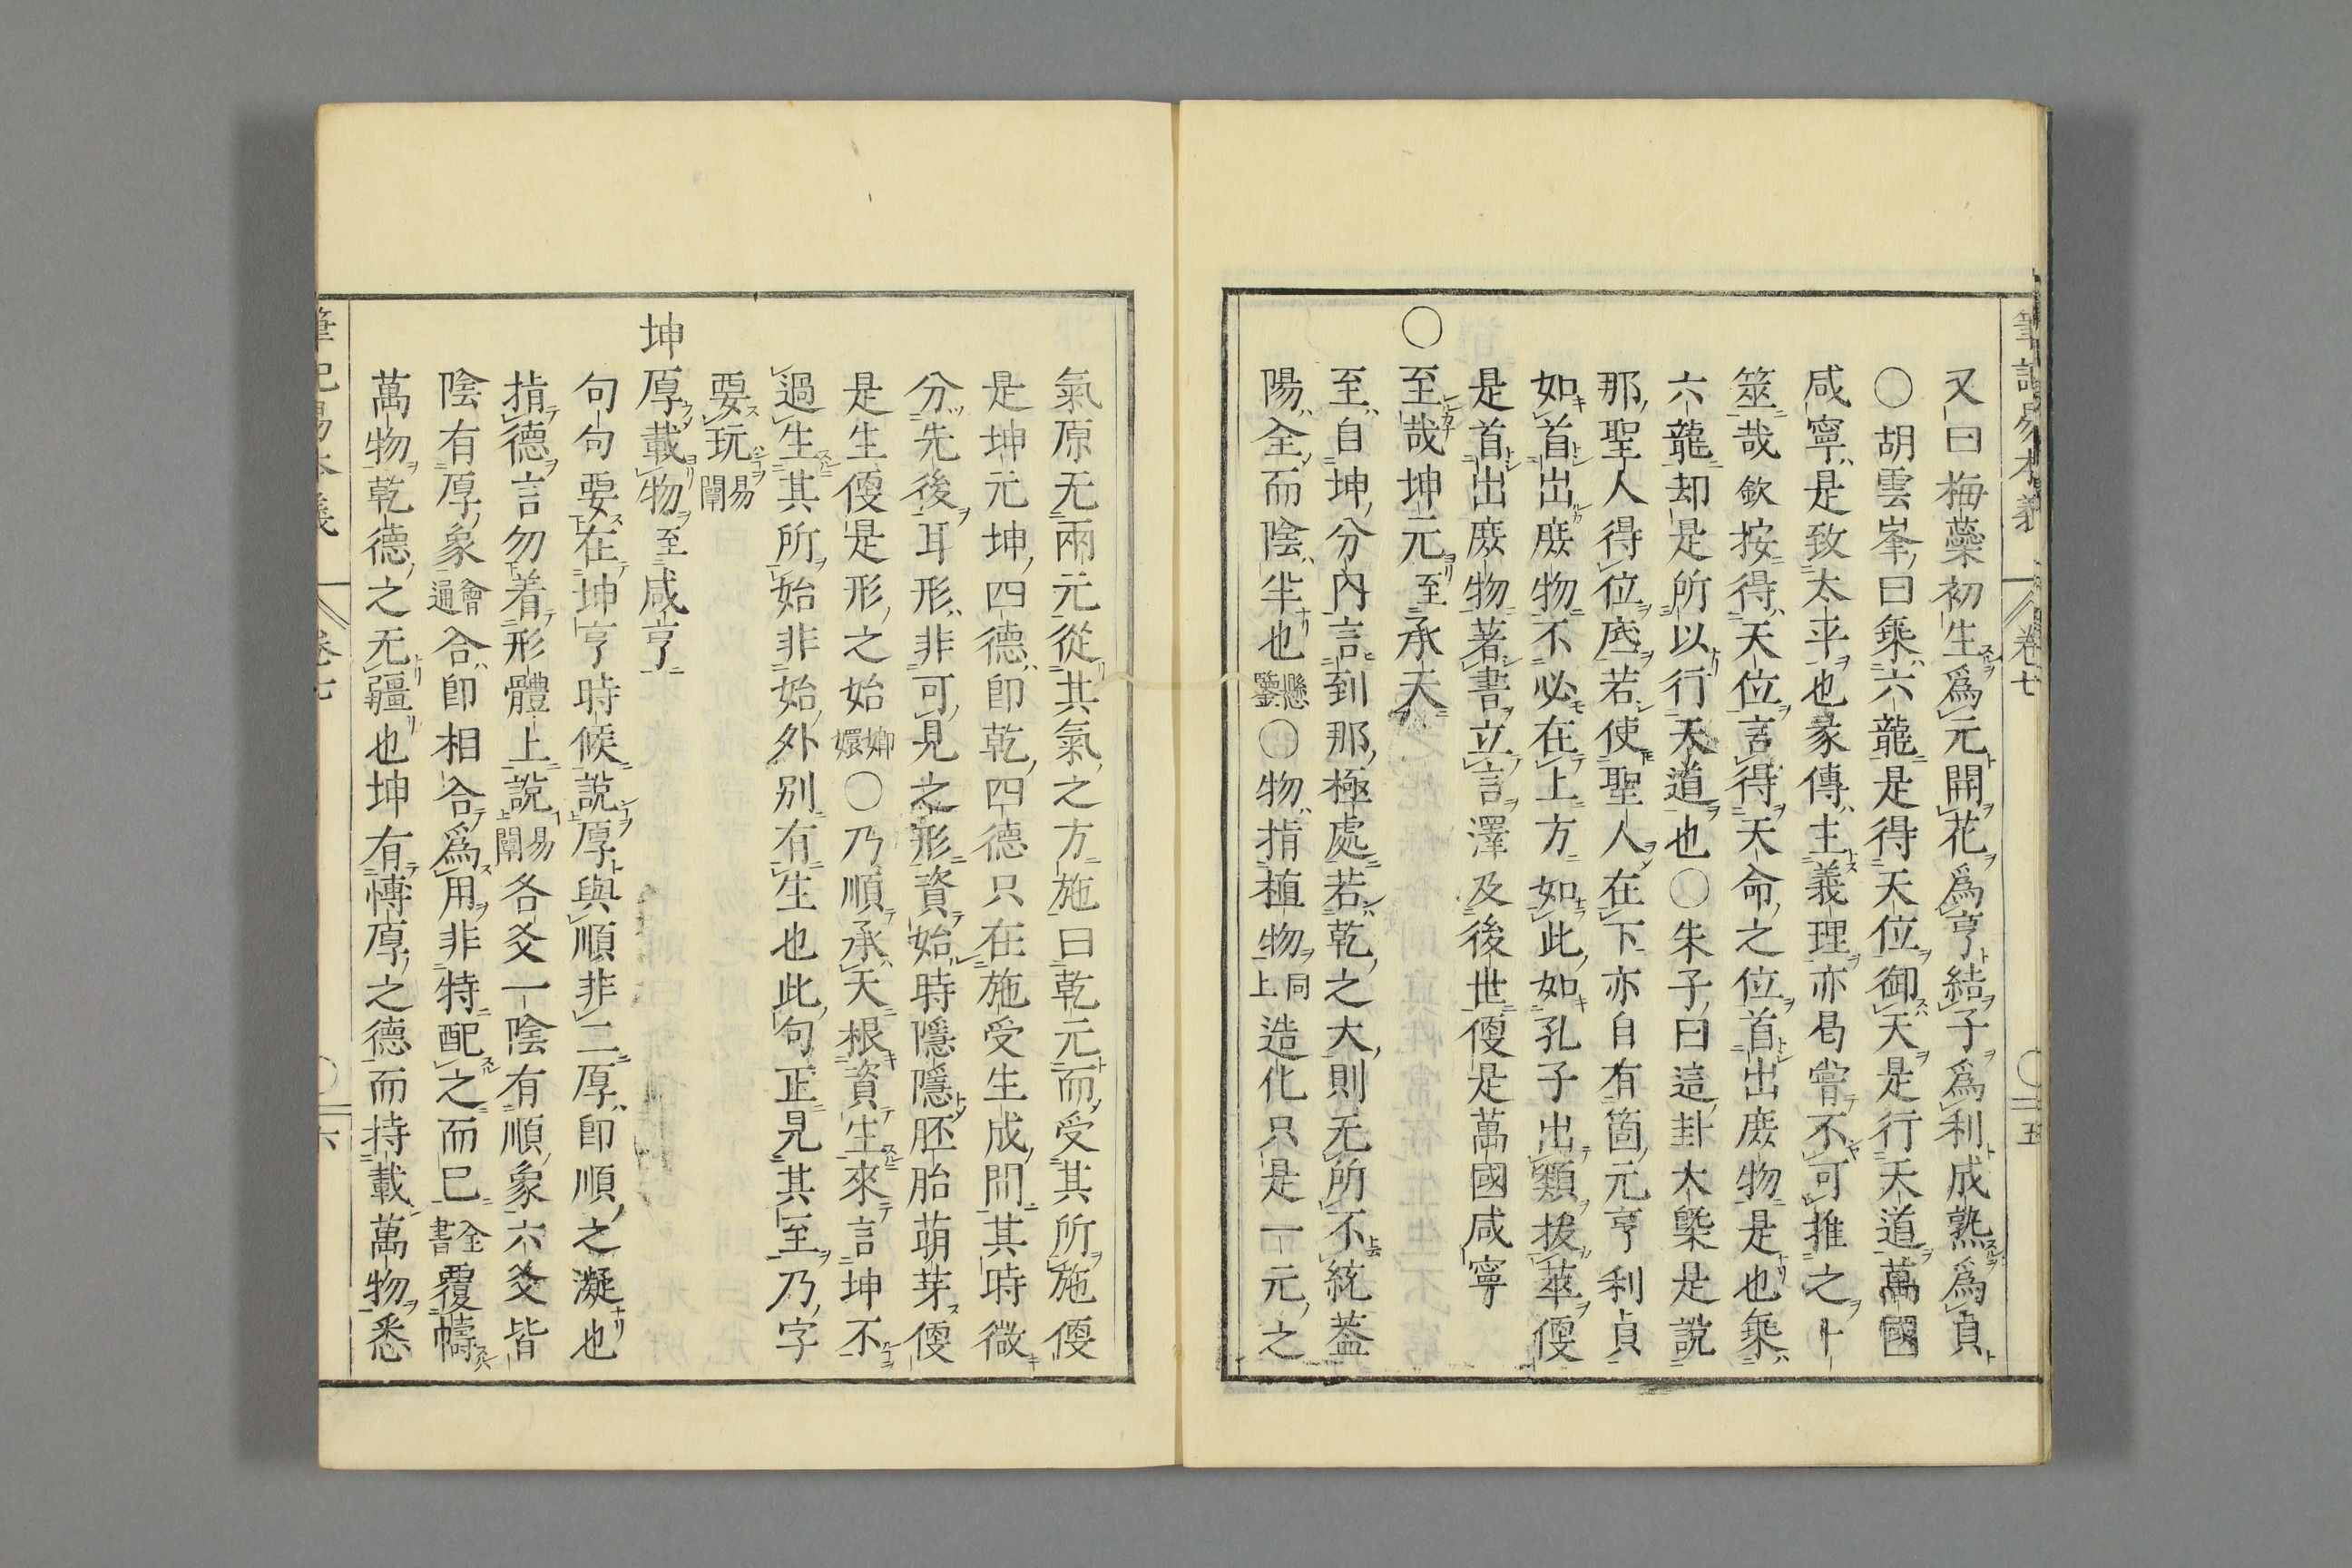 又曰梅蘂初生爲元開花爲亨結子爲利成熟爲貞
○胡雲峯曰乗六龍是得天位御天是行天道萬國
咸寧是致太平也彖傳主義理亦曷甞不可推之卜
筮哉欽按得天位言得天命之位首出庻物是也乗
六龍却是所以行天道也○朱子曰這卦大槩是說
那聖人得位底若使聖人在下亦自有箇元亨利貞
如首出庻物不必在上方如此如孔子出類拔萃便
是首出庻物著書立言澤及後世便是萬國咸寧
○至哉坤元至承天
至自坤分內言到那極處若乾之大則无所不統葢
陽全而陰半也懸鑒○物指植物同上造化只是一元之
氣原无兩元從其氣之方施曰乾元而受其所施便
是坤元坤四德卽乾四德只在施受生成間其時微
分先後耳形非可見之形資始時隱隱胚胎萌芽便
是生便是形之始嫏嬛○乃順承天根資生來言坤不
過生其所始非始外別有生也此句正見其至乃字
要玩易闡
坤厚載物至咸亨
句句要在坤亨時候說厚與順非二厚卽順之凝也
指德言勿着形體上說易闡各爻一陰有順象六爻皆
陰有厚象會通合卽相合合爲用非特配之而已全書覆幬
萬物乾德之无疆也坤有慱厚之德而持載萬物悉
筆記易本義 卷七 ○五
筆記易本義 卷七 ○六